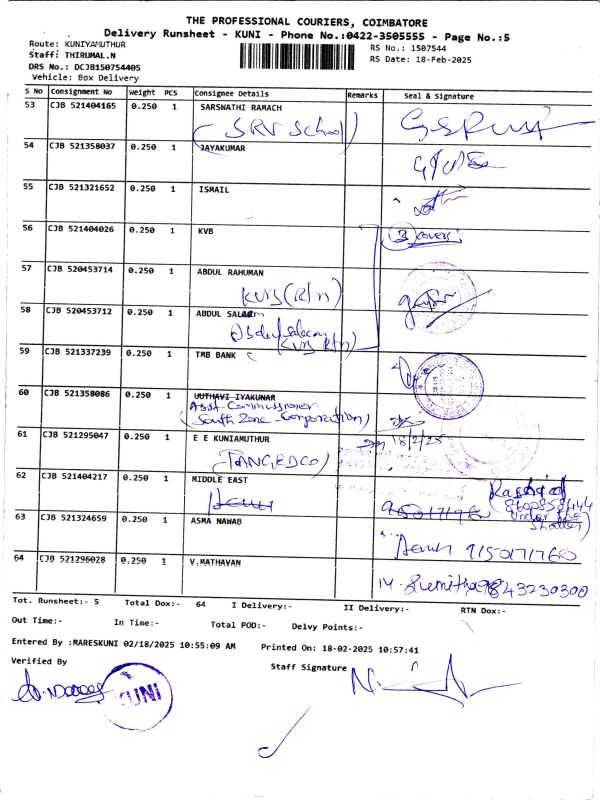 THE PROFESSIONAL COURIERS, COIMBATORE
Delivery Runsheet - KUNI - Phone No.:0422-3505555 - Page No.:5
Route: KUNIYAMUTHUR
RS No.: 1507544
Staff: THIRUMAL.N
RS Date: 18-Feb-2025
DRS No.: DCJB150754405
Vehicle: Box Delivery
S No Consignment No Weight PCS Consignee Details Remarks Seal & Signature
53 CJB 521404165 0.250 1 SARSWATHI RAMACH
(SRV School)
54 CJB 521358037 0.250 1 JAYAKUMAR
55 CJB 521321652 0.250 1 ISMAIL
56 CJB 521404026 0.250 1 KVB
3 covers
57 CJB 520453714 0.250 1 ABDUL RAHUMAN
KVB (R/n)
58 CJB 520453712 0.250 1 ABDUL SALAAM
Abdul Salaam
(KVB R/n)
59 CJB 521337239 0.250 1 TMB BANK
60 CJB 521358086 0.250 1 UUTHAVI IYAKUNAR
Asst. Commissioner
(South Zone - Corporation)
61 CJB 521295047 0.250 1 E E KUNIAMUTHUR
18/2/25
(TANGEDCO)
62 CJB 521404217 0.250 1 MIDDLE EAST
Rashid
9150171760
under the
shutter)
63 CJB 521324659 0.250 1 ASMA NAWAB
9150171760
64 CJB 521296028 0.250 1 V.MATHAVAN
M. Sumitha 9843230300
Tot. Runsheet:- 5 Total Dox:- 64 I Delivery:- II Delivery:- RTN Dox:-
Out Time:- In Time:- Total POD:- Delvy Points:-
Entered By :MARESKUNI 02/18/2025 10:55:09 AM Printed On: 18-02-2025 10:57:41
Verified By
Staff Signature
KUNI